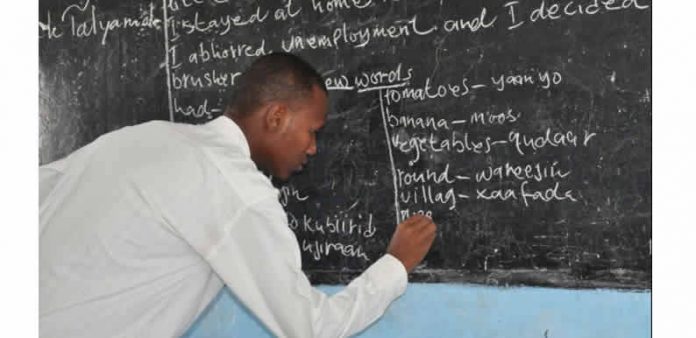 I stayed at home
Mc Talyamale
I abhorred unemployment and I decided
brusher new words
had-
tomatoes - yaanyo
banana - moos
vegetables - qudaar
round - wareesin
villag - xaafada
Kubiirid
ujiraan